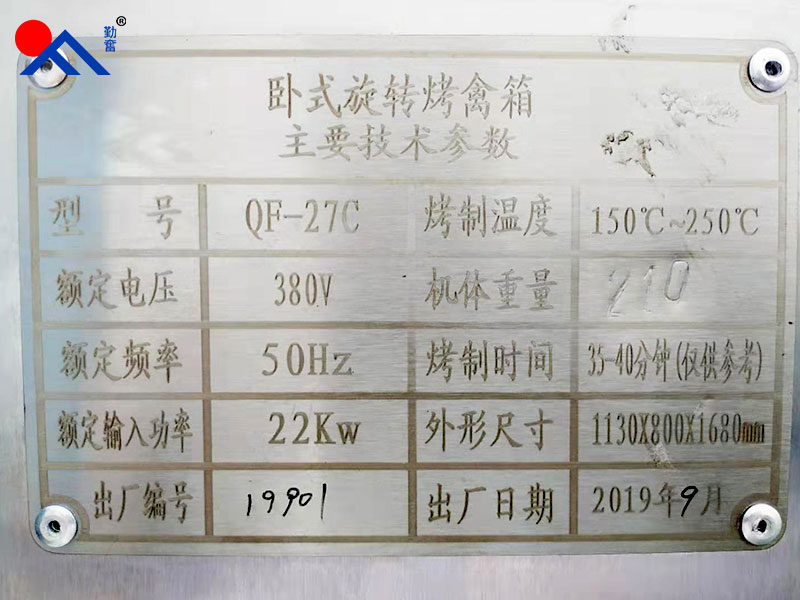 勤奮®
卧式旋转烤禽箱
主要技术参数
型 号 QF-27C 烤制温度 150℃~250℃
额定电压 380V 机体重量 210
额定频率 50Hz 烤制时间 35-40分钟(仅供参考)
额定输入功率 22Kw 外形尺寸 1130X800X1680mm
出厂编号 19901 出厂日期 2019年9月